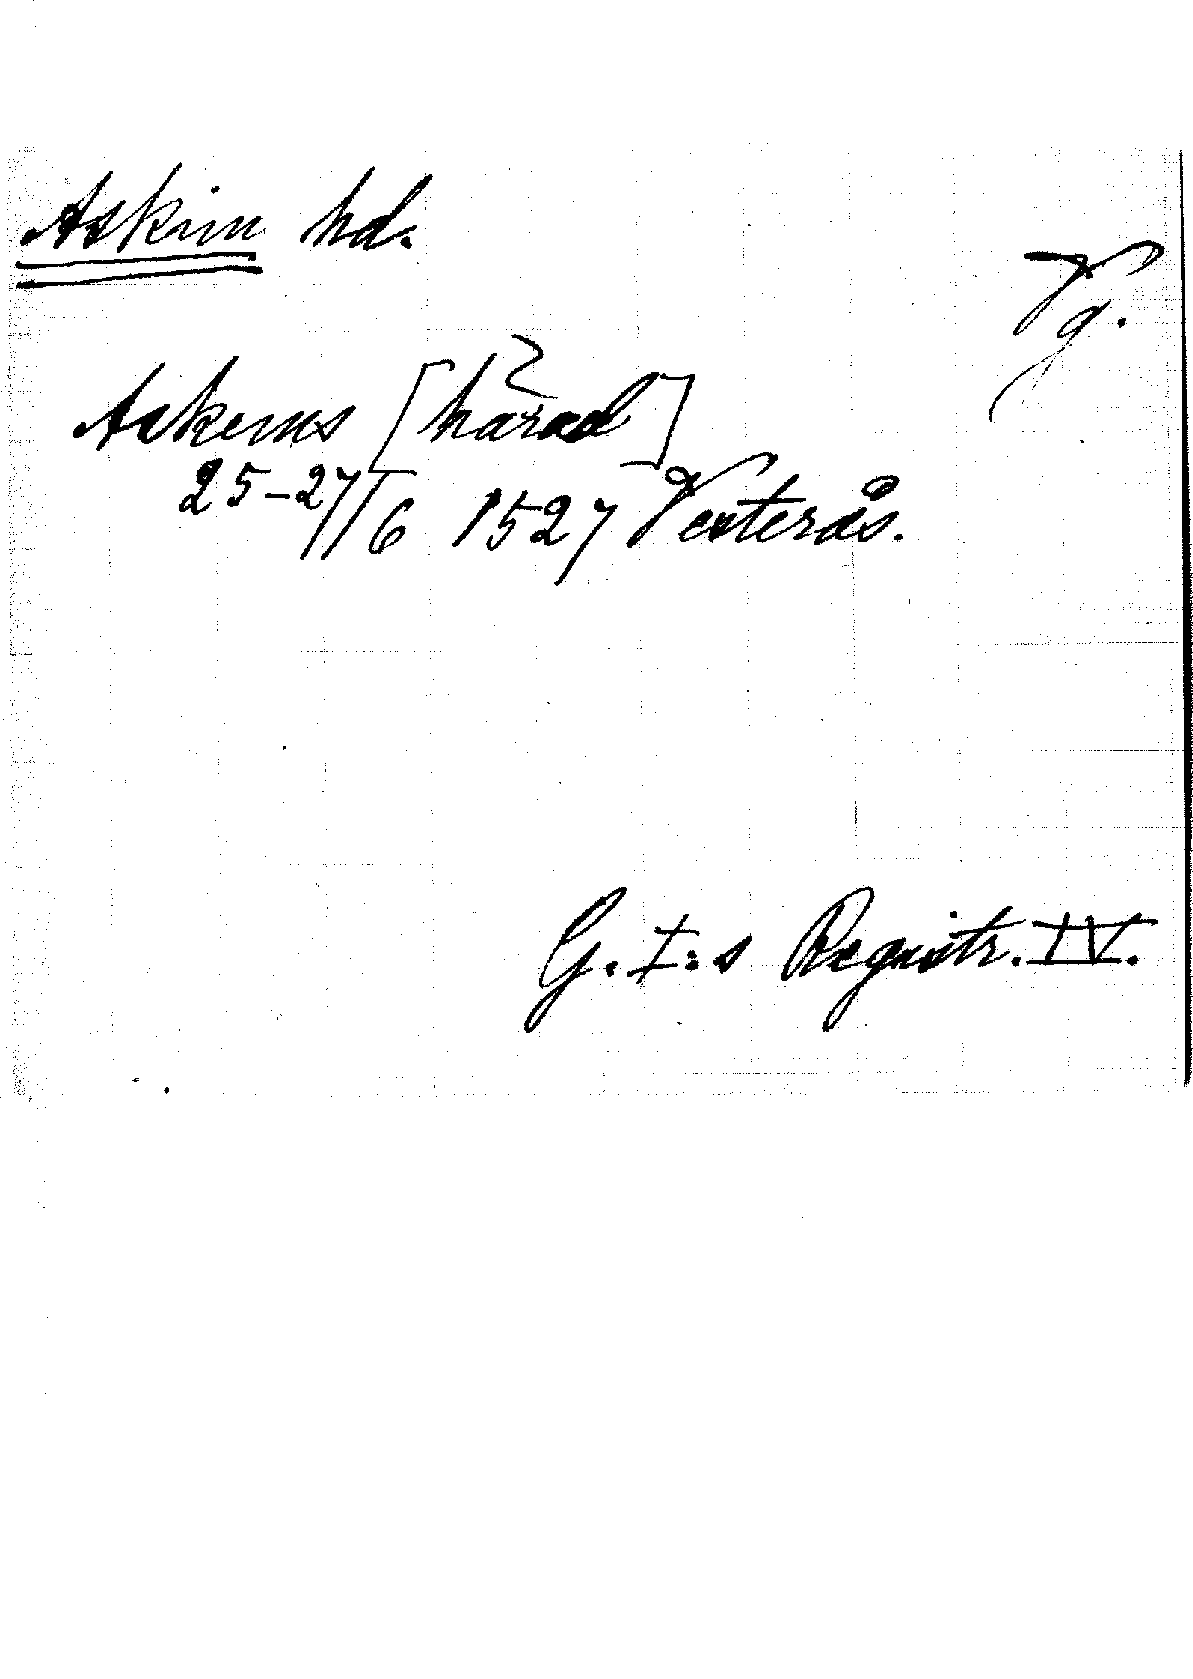 Askim hd.
Vg.
Askems [härad]
25-27/6 1527 Vesterås.
G. I:s Registr. IV.